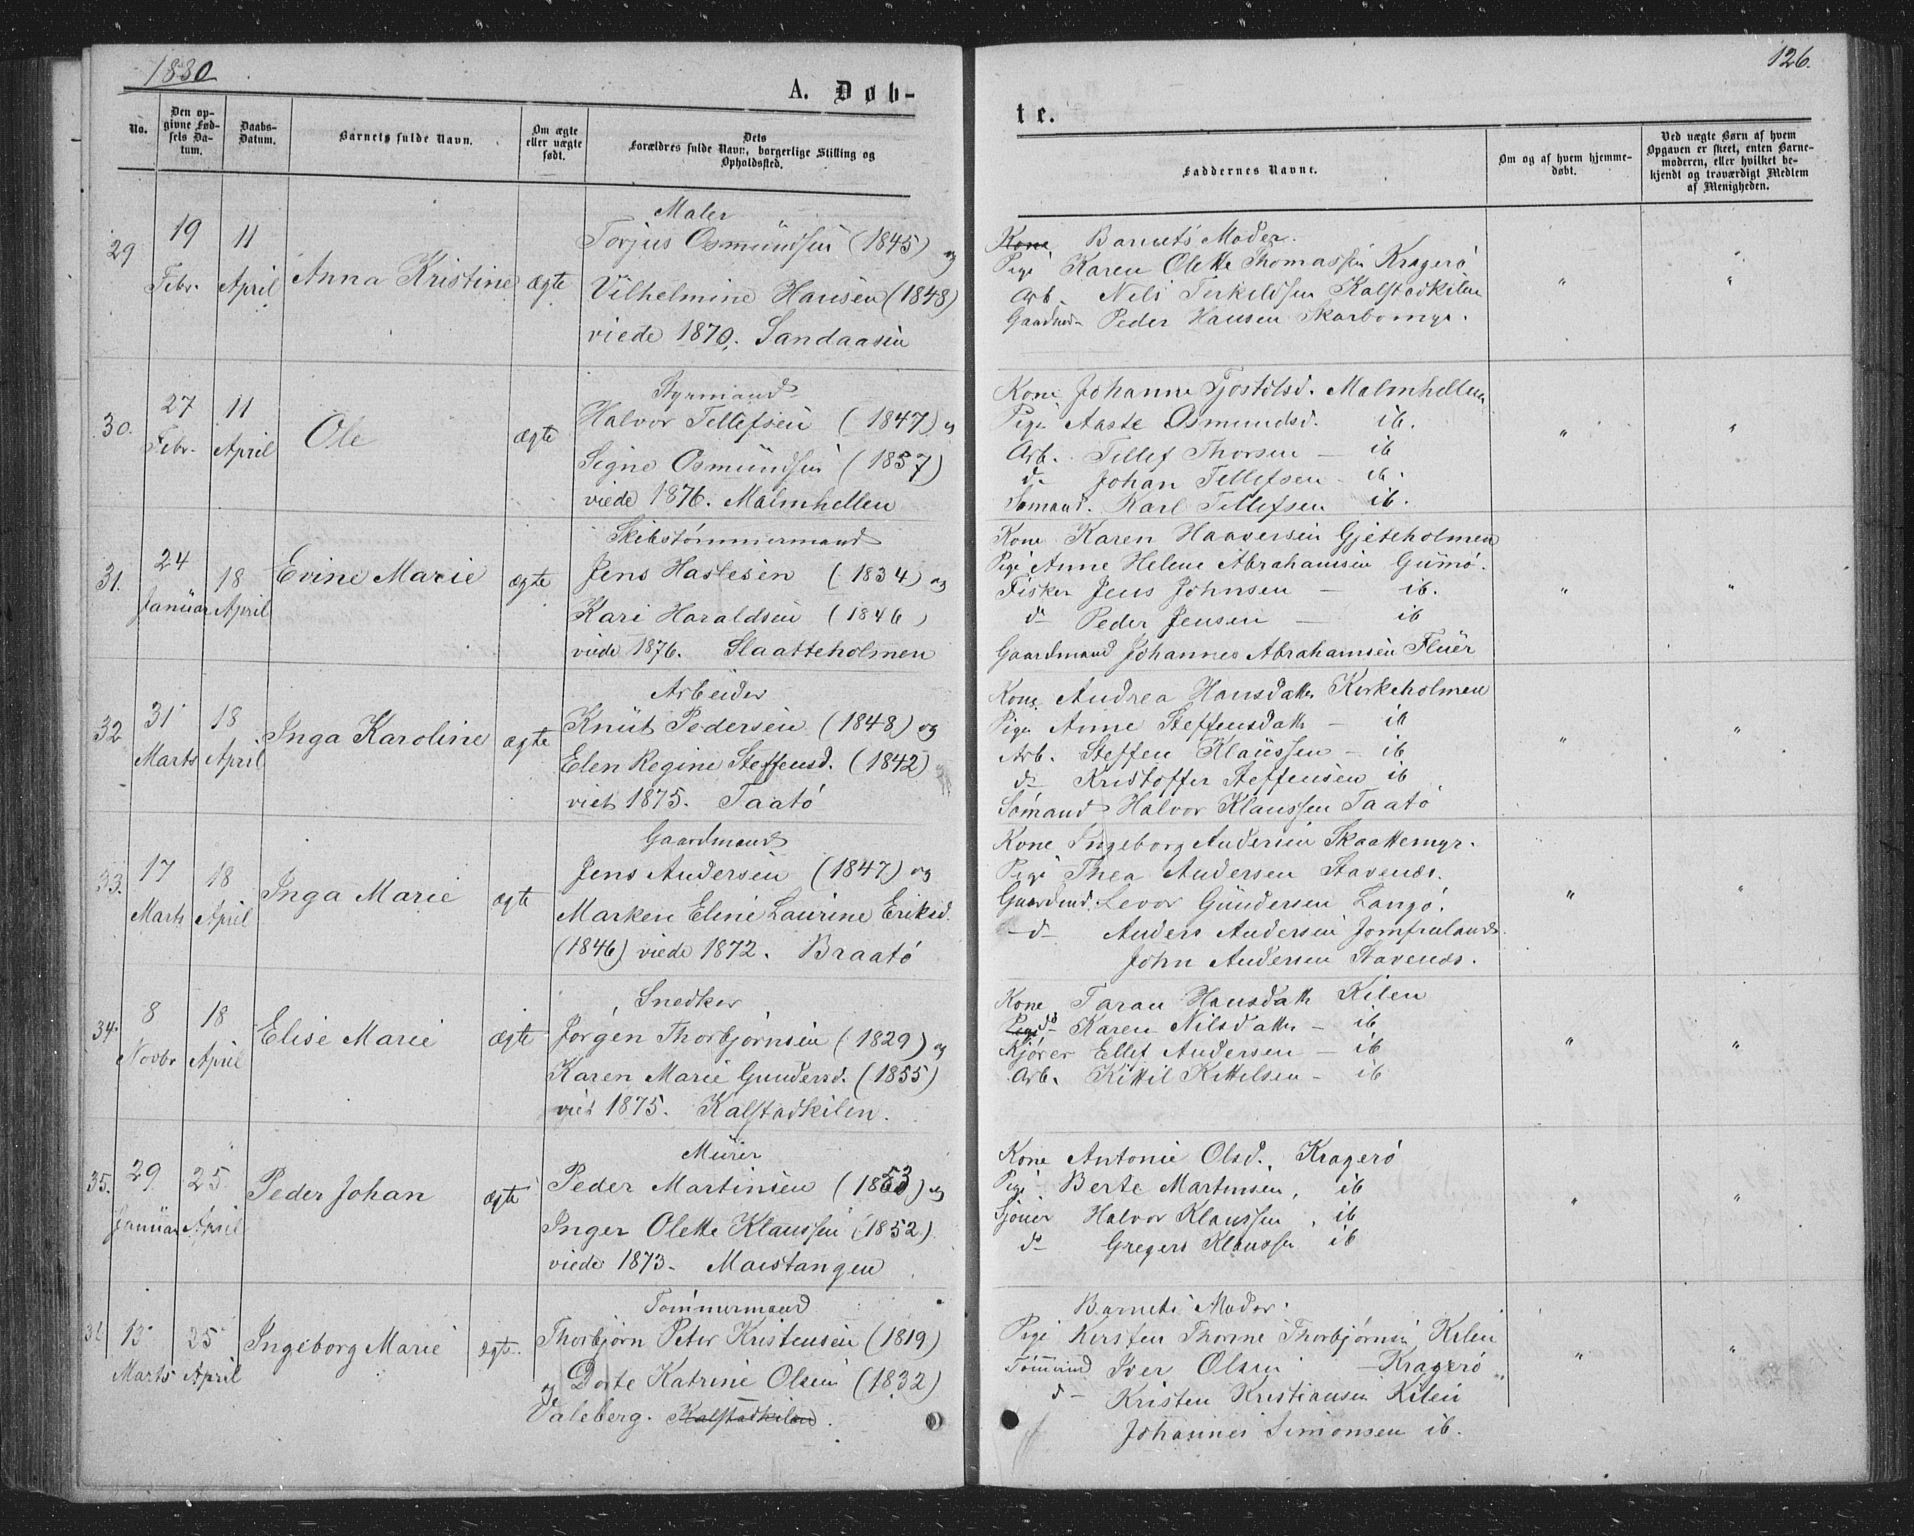 1880
126.
A. Døb-
te.
No.
Den op-
givne Fød-
sels Da-
tum.
Daabs-
Datum.
Barnets fulde Navn.
Om ægte
eller uægte
født.
Dets
Forældres fulde Navn, borgerlige Stilling og
Opholdssted.
Faddernes Navne.
Om og af hvem hjemme-
døbt.
Ved uægte Børn af hvem
Opgaven er skeet, enten Barne-
moderen, eller hvilket be-
kjendt og troværdigt Medlem
af Menigheden.
29
19
Febr.
11
April
Anna Kristine
ægte
Maler
Torjus Osmundsen (1845) og
Vilhelmine Hansen (1848)
viede 1870. Sandaasen
Kone Barnets Moder.
Pige Karen Olette Thomassen Kragerø
Arb. Nils Terkildsen Kalstadkilen
Gaardmd. Peder Hansen Skarbomyr.
30.
27
Febr.
11
April
Ole
ægte
Styrmand
Halvor Tellefsen (1847) og
Signe Osmundsen (1857)
viede 1876. Malmhellen
Kone Johanne Tjostolsd. Malmhellen
Pige Aaste Osmundsd. ib.
Arb. Tellef Thorsen — ib
do Johan Tellefsen - ib.
Sømand. Karl Tellefsen ib.
31.
24
Januar
18
April
Evine Marie
ægte
Skibstømmermand
Jens Haslesen (1834) og
Kari Haraldsen (1846)
viede 1876. Slaatteholmen
Kone Karen Haaversen Gjeteholmen
Pige Anne Helene Abrahamsen Gumø.
Fisker Jens Johnsen — ib.
do Peder Jensen — ib
Gaardmand Johannes Abrahamsen Fluer
32
31
Marts
18
April
Inga Karoline
ægte
Arbeider
Knut Pedersen (1848) og
Elen Regine Steffensd. (1842)
viet 1875. Taatø
Kone Andrea Hansdatter Kirkeholmen
Pige Anne Steffensdatt — ib
Arb. Steffen Klaussen — ib
do Kristoffer Steffensen ib
Sømand Halvor Klaussen Taatø
33.
17
Marts
18
April
Inga Marie
ægte
Gaardmand
Jens Andersen (1847) og
Marken Eline Laurine Eriksd.
(1846) viede 1872. Braatø
Kone Ingeborg Andersen Skaattemyr.
Pige Thea Andersen Stavenæs.
Gaardmd. Levor Gundersen Langø.
—do— Anders Andersen Jomfruland.
John Andersen Stavenæs.
34.
8
Novbr
18
April
Elise Marie
ægte
Snedker
Jørgen Thorbjørnsen (1829) og
Karen Marie Gundersd. (1855)
viet 1875. Kalstadkilen.
Kone Taran Hansdatt Kilen
Pige do Karen Nilsdatter — ib
Kjører Ellef Andersen — ib
Arb. Kittil Kittelsen — ib
35.
29
Januar
25
April
Peder Johan
ægte
Murer
Peder Martinsen (1853) og
Inger Olette Klaussen (1852)
viede 1873. Marstangen
Kone Antonie Olsd. Kragerø
Pige Berte Martinsen, ib
Sjøuer Halvor Klaussen, ib
do Gregers Klaussen ib
13
Marts
25
April
Ingeborg Marie
ægte.
Tømmermand
Thorbjørn Peter Kristensen (1819)
og Dorte Katrine Olsen (1832)
Valeberg. Kalstadkilen.
Barnets Moder.
Pige Kirsten Thorine Thorbjørnsen Kilen
Tømmrmd Iver Olsen — Kragerø
do Kristen Kristiansen Kilen
Johannes Simonsen ib.